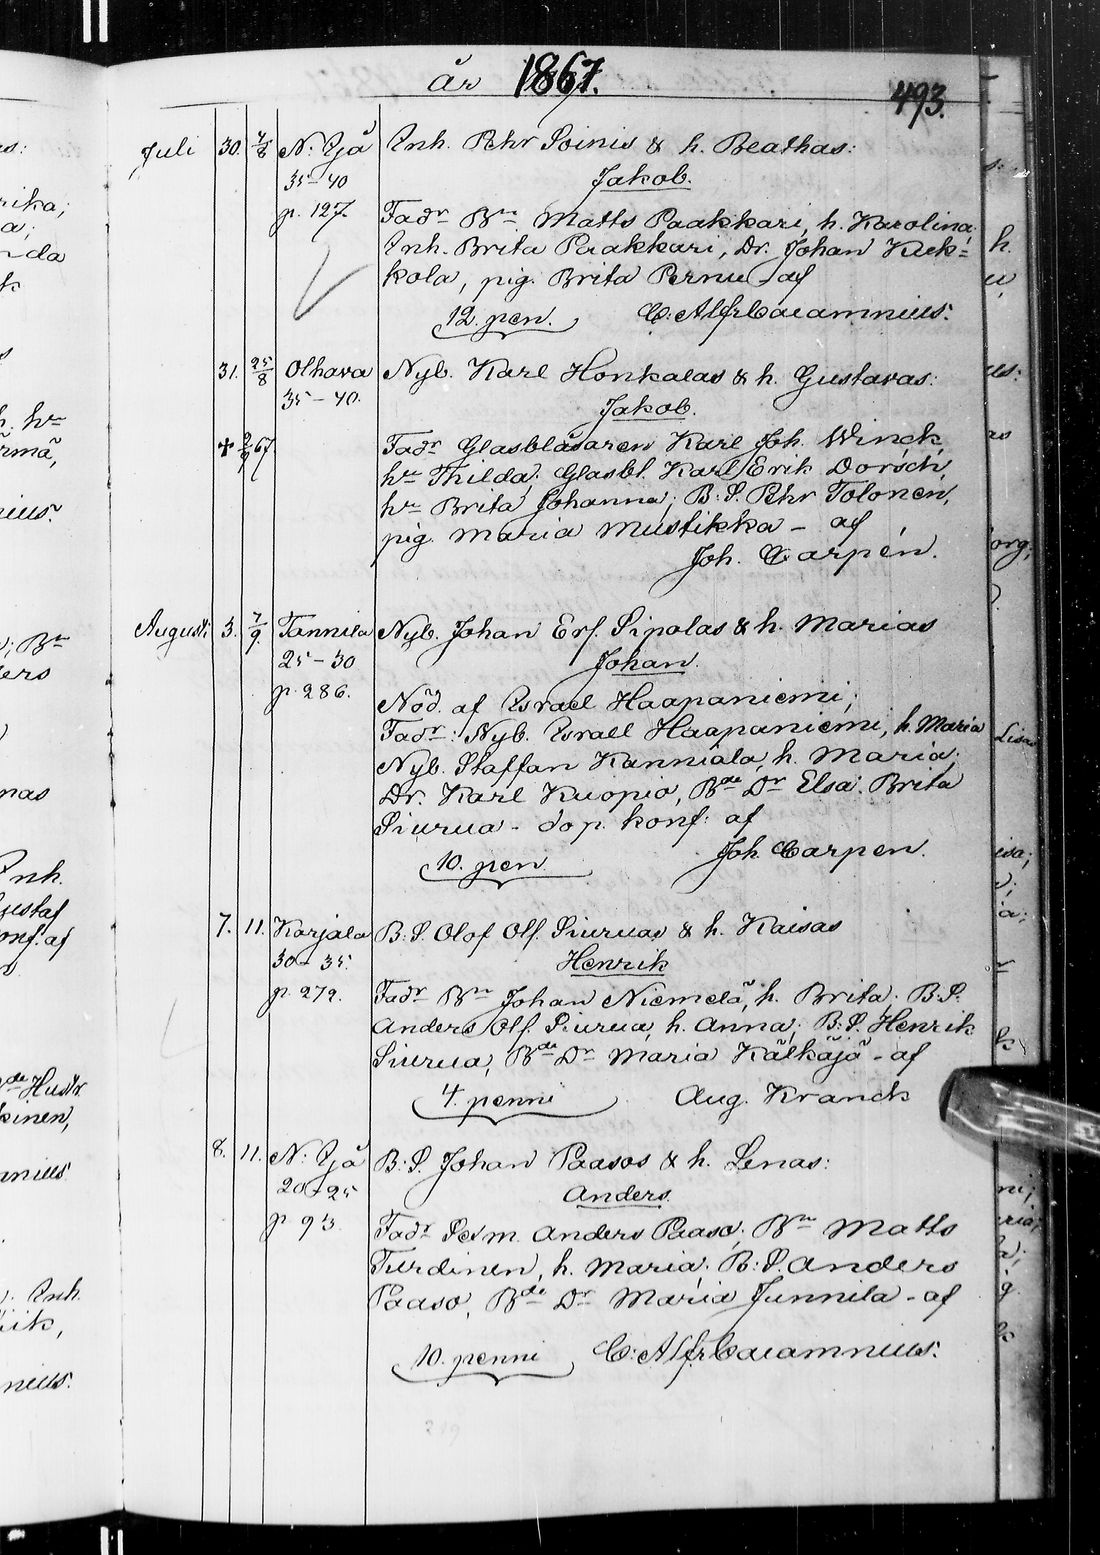 år 1867.
493.
Juli 30. 4/8 N: Ijå Inh. Pehr Soinis & h. Beathas:
35–40 Jakob.
p. 127. Fadr Bn. Matts Paakkari, h. Karolina;
Inh. Brita Paakkari, Dr. Johan Kuk=
kola, pig. Brita Pernu – af
12. pen. C: Alfr Calamnius.
31. 25/8 Olhava Nyb. Karl Honkalas & h. Gustavas:
35–40. Jakob.
✝ 2/9 67 Fadr Glasblåsaren Karl Joh. Winck,
hr Thilda; Glasbl. Karl Erik Dorsch,
hr Brita Johanna; B: S. Pehr Tolonen,
pig. Maria Mustikka – af
Joh. Carpén.
Augusti 3. 7/9 Tannila Nyb. Johan Erss. Sipolas & h. Marias
25–30 Johan.
p. 286. Nöd. af Israel Haapaniemi;
Fadr: Nyb. Israel Haapaniemi, h. Maria
Nyb. Staffan Kanniala, h. Maria;
Dr. Karl Kuopio, Bde Dr Elsa Brita
Siurua – dop. konf: af
10. pen Joh. Carpen.
7. 11. Karjala B: S. Olof Olss. Siuruas & h. Kaisas
30–35. Henrik
p. 272. Fadr Bn Johan Niemelä, h. Brita; B: S.
Anders Olss. Siurua, h. Anna; B: S. Henrik
Siurua, Bde Dr Maria Kälkäjä – af
4. penni Aug. Kranck
8. 11. N: Ijå B: S. Johan Paasos & h. Lenas:
20–25 Anders.
p. 93. Fadr Sexm. Anders Paaso; Bn Matts
Turdinen, h. Maria; B: S. Anders
Paaso, Bde Dr Maria Junnila – af
10. penni C: Alfr Calamnius.